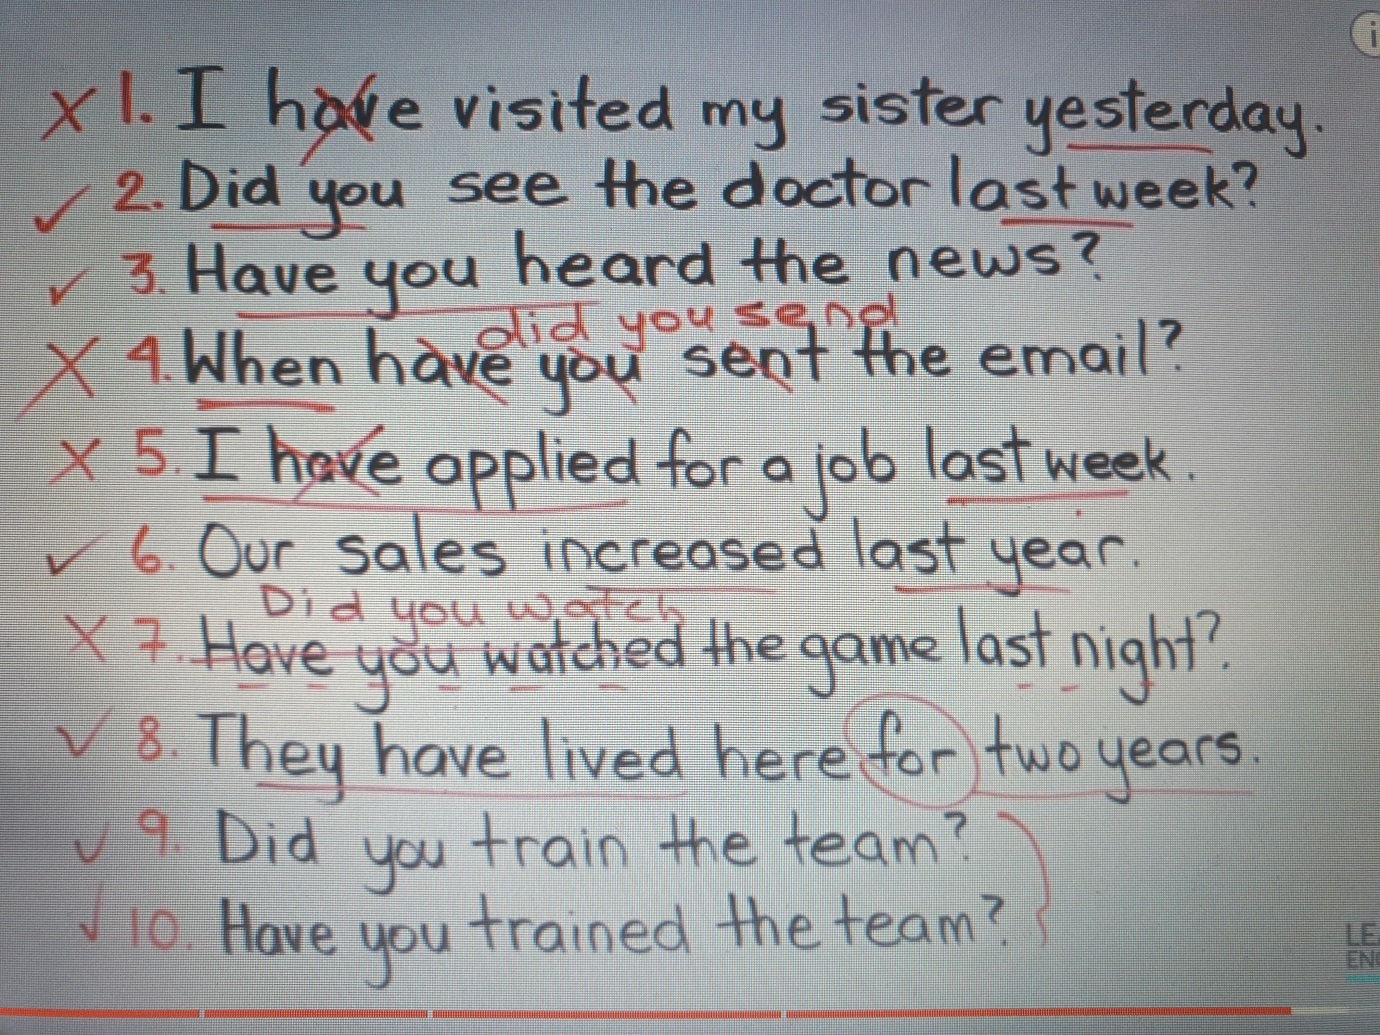 i
X 1. I have visited my sister yesterday.
✓ 2. Did you see the doctor last week?
✓ 3. Have you heard the news?
did you send
X 4. When have you sent the email?
X 5. I have applied for a job last week.
✓ 6. Our sales increased last year.
Did you watch
X 7. Have you watched the game last night?
✓ 8. They have lived here for two years.
✓ 9. Did you train the team?
✓ 10. Have you trained the team?